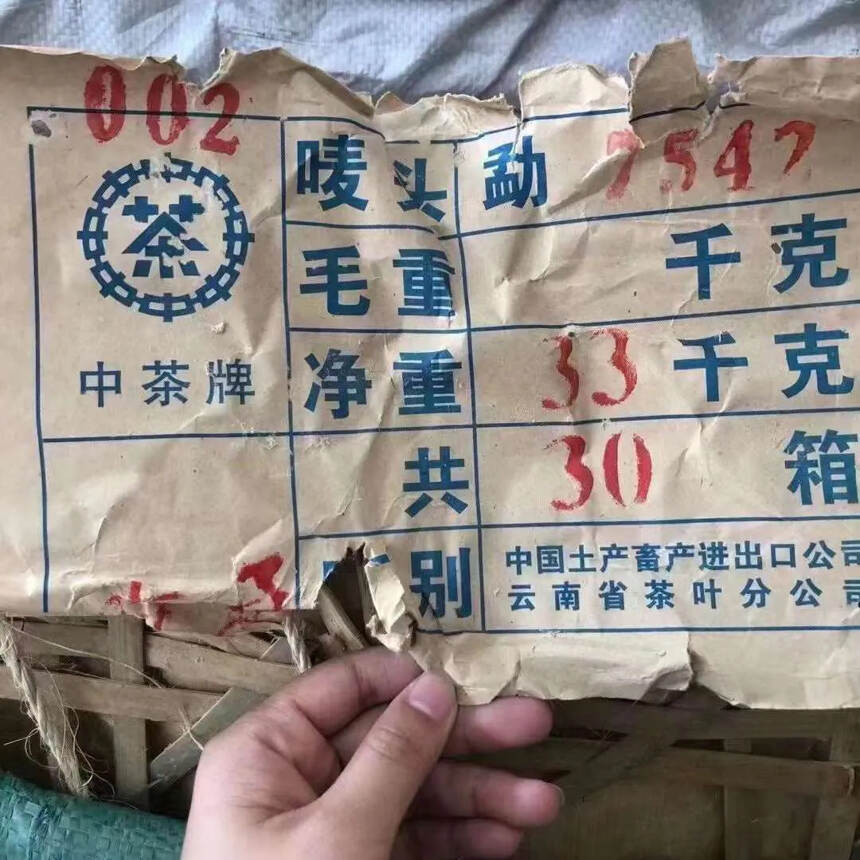 002
茶
中茶牌
唛头 勐 7542
毛重 千克
净重 33 千克
共 30 箱
别 中国土产畜产进出口公司
云南省茶叶分公司